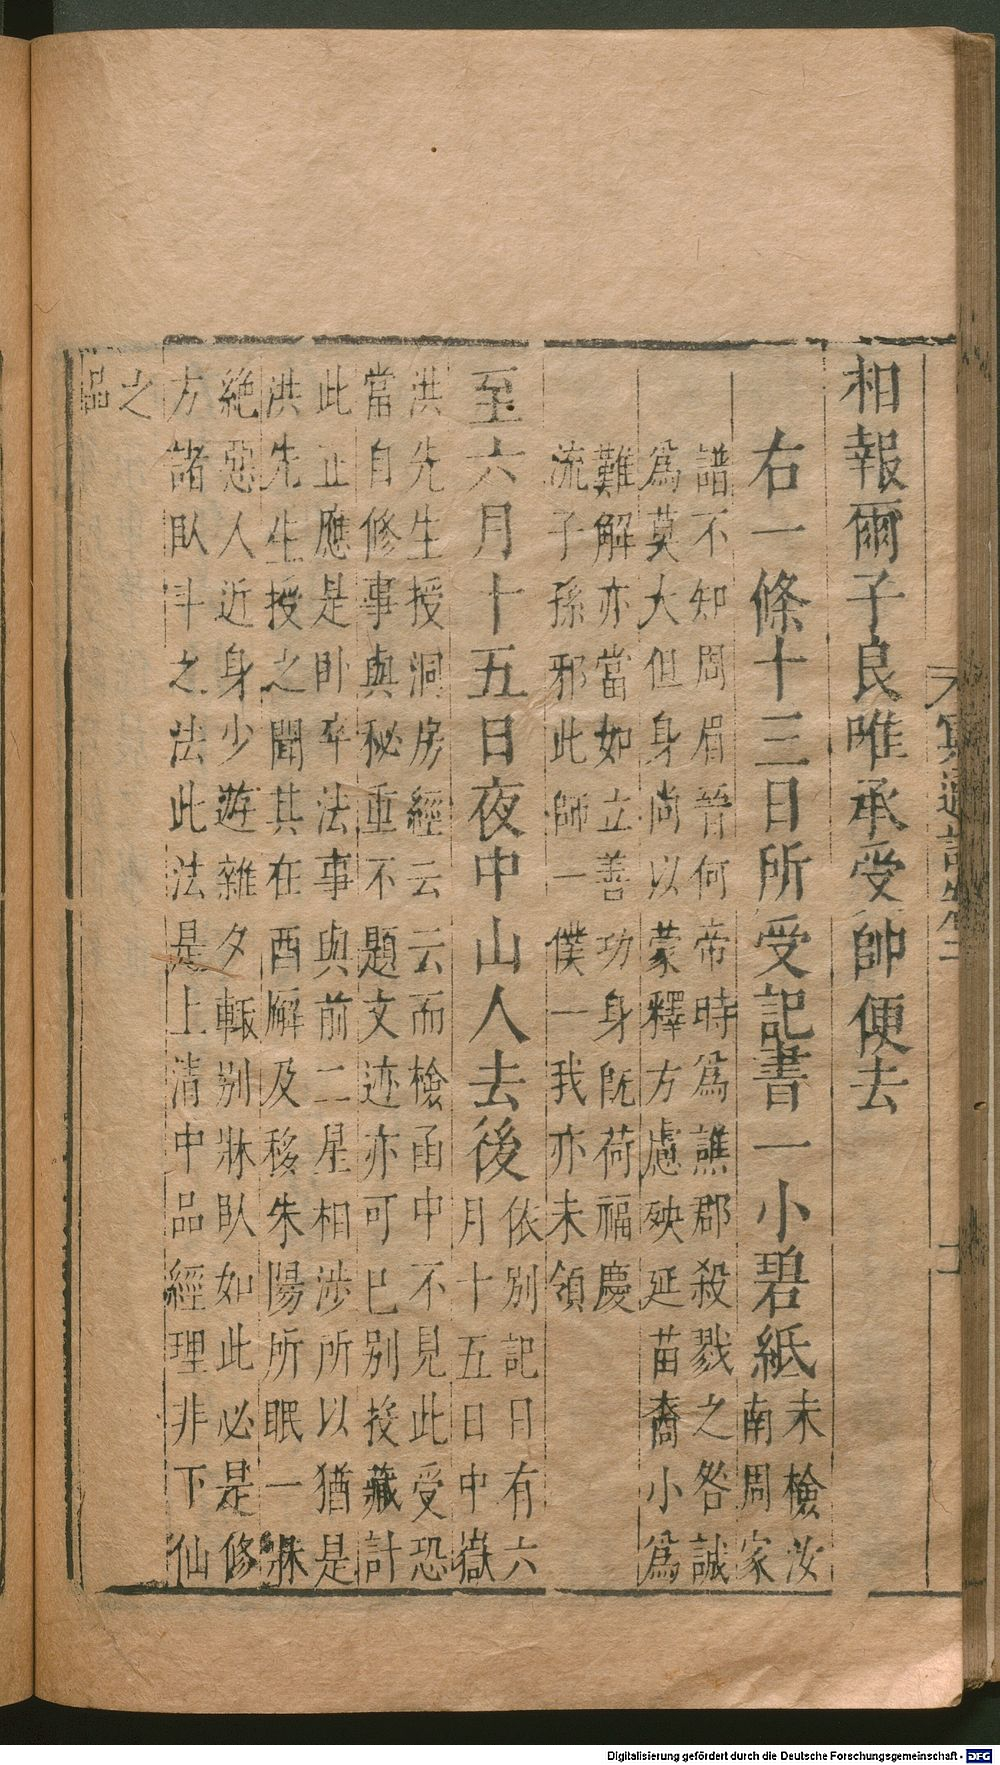 相報爾子良唯承受師便去
右一條十三日所受記書一小碧紙未檢汝
南周家
譜不知周眉晉何帝時爲譙郡殺戮之咎誠
爲莫大但身尚以蒙釋方慮殃延苗裔小爲
難解亦當如立善功身旣荷福慶
流子孫邪此師一僕一我亦未領
至六月十五日夜中山人去後依別記日有六
月十五日中嶽
洪先生授洞房經云云而檢函中不見此受恐
當自修事與秘重不題文迹亦可已別投藏計
此正應是卧斗法事與前二星相涉所以猶是
洪先生授之聞其在酉廨及移朱陽所眠一牀
絶惡人近身少遊雜夕輙別牀臥如此必是修
方諸臥斗之法此法是上清中品經理非下仙
之
品
冥通記卷二
Digitalisierung gefördert durch die Deutsche Forschungsgemeinschaft - DFG